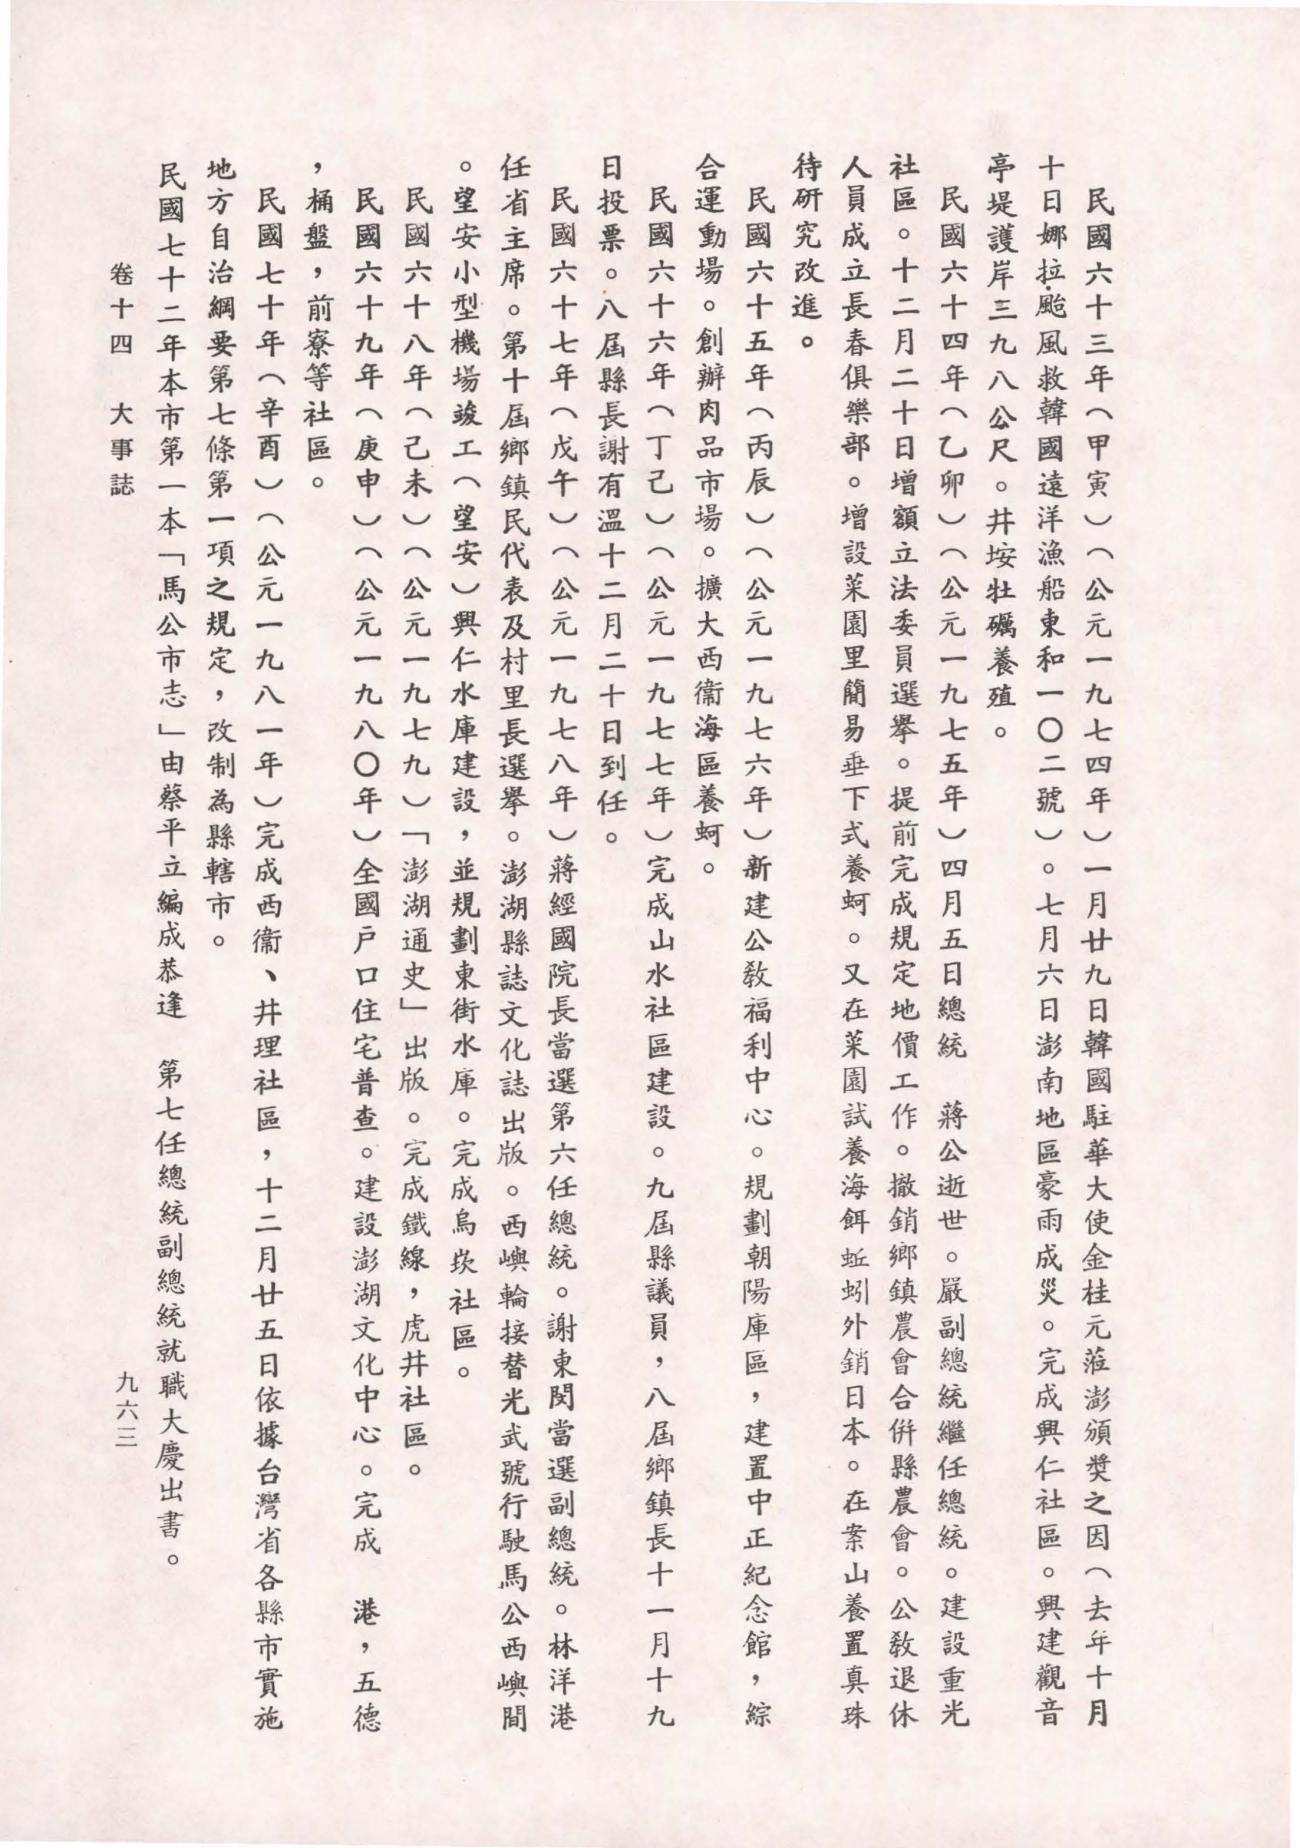 民國六十三年（甲寅）（公元一九七四年）一月廿九日韓國駐華大使金桂元蒞澎頒獎之因（去年十月
十日娜拉颱風救韓國遠洋漁船東和一〇二號）。七月六日澎南地區豪雨成災。完成興仁社區。興建觀音
亭堤護岸三九八公尺。井垵牡礪養殖。
民國六十四年（乙卯）（公元一九七五年）四月五日總統　蔣公逝世。嚴副總統繼任總統。建設重光
社區。十二月二十日增額立法委員選舉。提前完成規定地價工作。撤銷鄉鎮農會合併縣農會。公教退休
人員成立長春俱樂部。增設菜園里簡易垂下式養蚵。又在菜園試養海餌蚯蚓外銷日本。在案山養置真珠
待研究改進。
民國六十五年（丙辰）（公元一九七六年）新建公教福利中心。規劃朝陽庫區，建置中正紀念館，綜
合運動場。創辦肉品市場。擴大西衛海區養蚵。
民國六十六年（丁己）（公元一九七七年）完成山水社區建設。九屆縣議員，八屆鄉鎮長十一月十九
日投票。八屆縣長謝有溫十二月二十日到任。
民國六十七年（戊午）（公元一九七八年）蔣經國院長當選第六任總統。謝東閔當選副總統。林洋港
任省主席。第十屆鄉鎮民代表及村里長選舉。澎湖縣誌文化誌出版。西嶼輪接替光武號行駛馬公西嶼間
。望安小型機場竣工（望安）興仁水庫建設，並規劃東街水庫。完成烏崁社區。
民國六十八年（己未）（公元一九七九）「澎湖通史」出版。完成鐵線，虎井社區。
民國六十九年（庚申）（公元一九八〇年）全國戶口住宅普查。建設澎湖文化中心。完成　港，五德
，桶盤，前寮等社區。
民國七十年（辛酉）（公元一九八一年）完成西衛、井理社區，十二月廿五日依據台灣省各縣市實施
地方自治綱要第七條第一項之規定，改制為縣轄市。
民國七十二年本市第一本「馬公市志」由蔡平立編成恭逢　第七任總統副總統就職大慶出書。
卷十四　大事誌
九六三